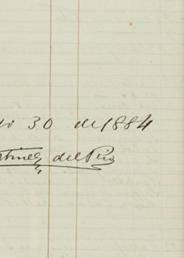 do 30 de 1884
rtinez del Rio